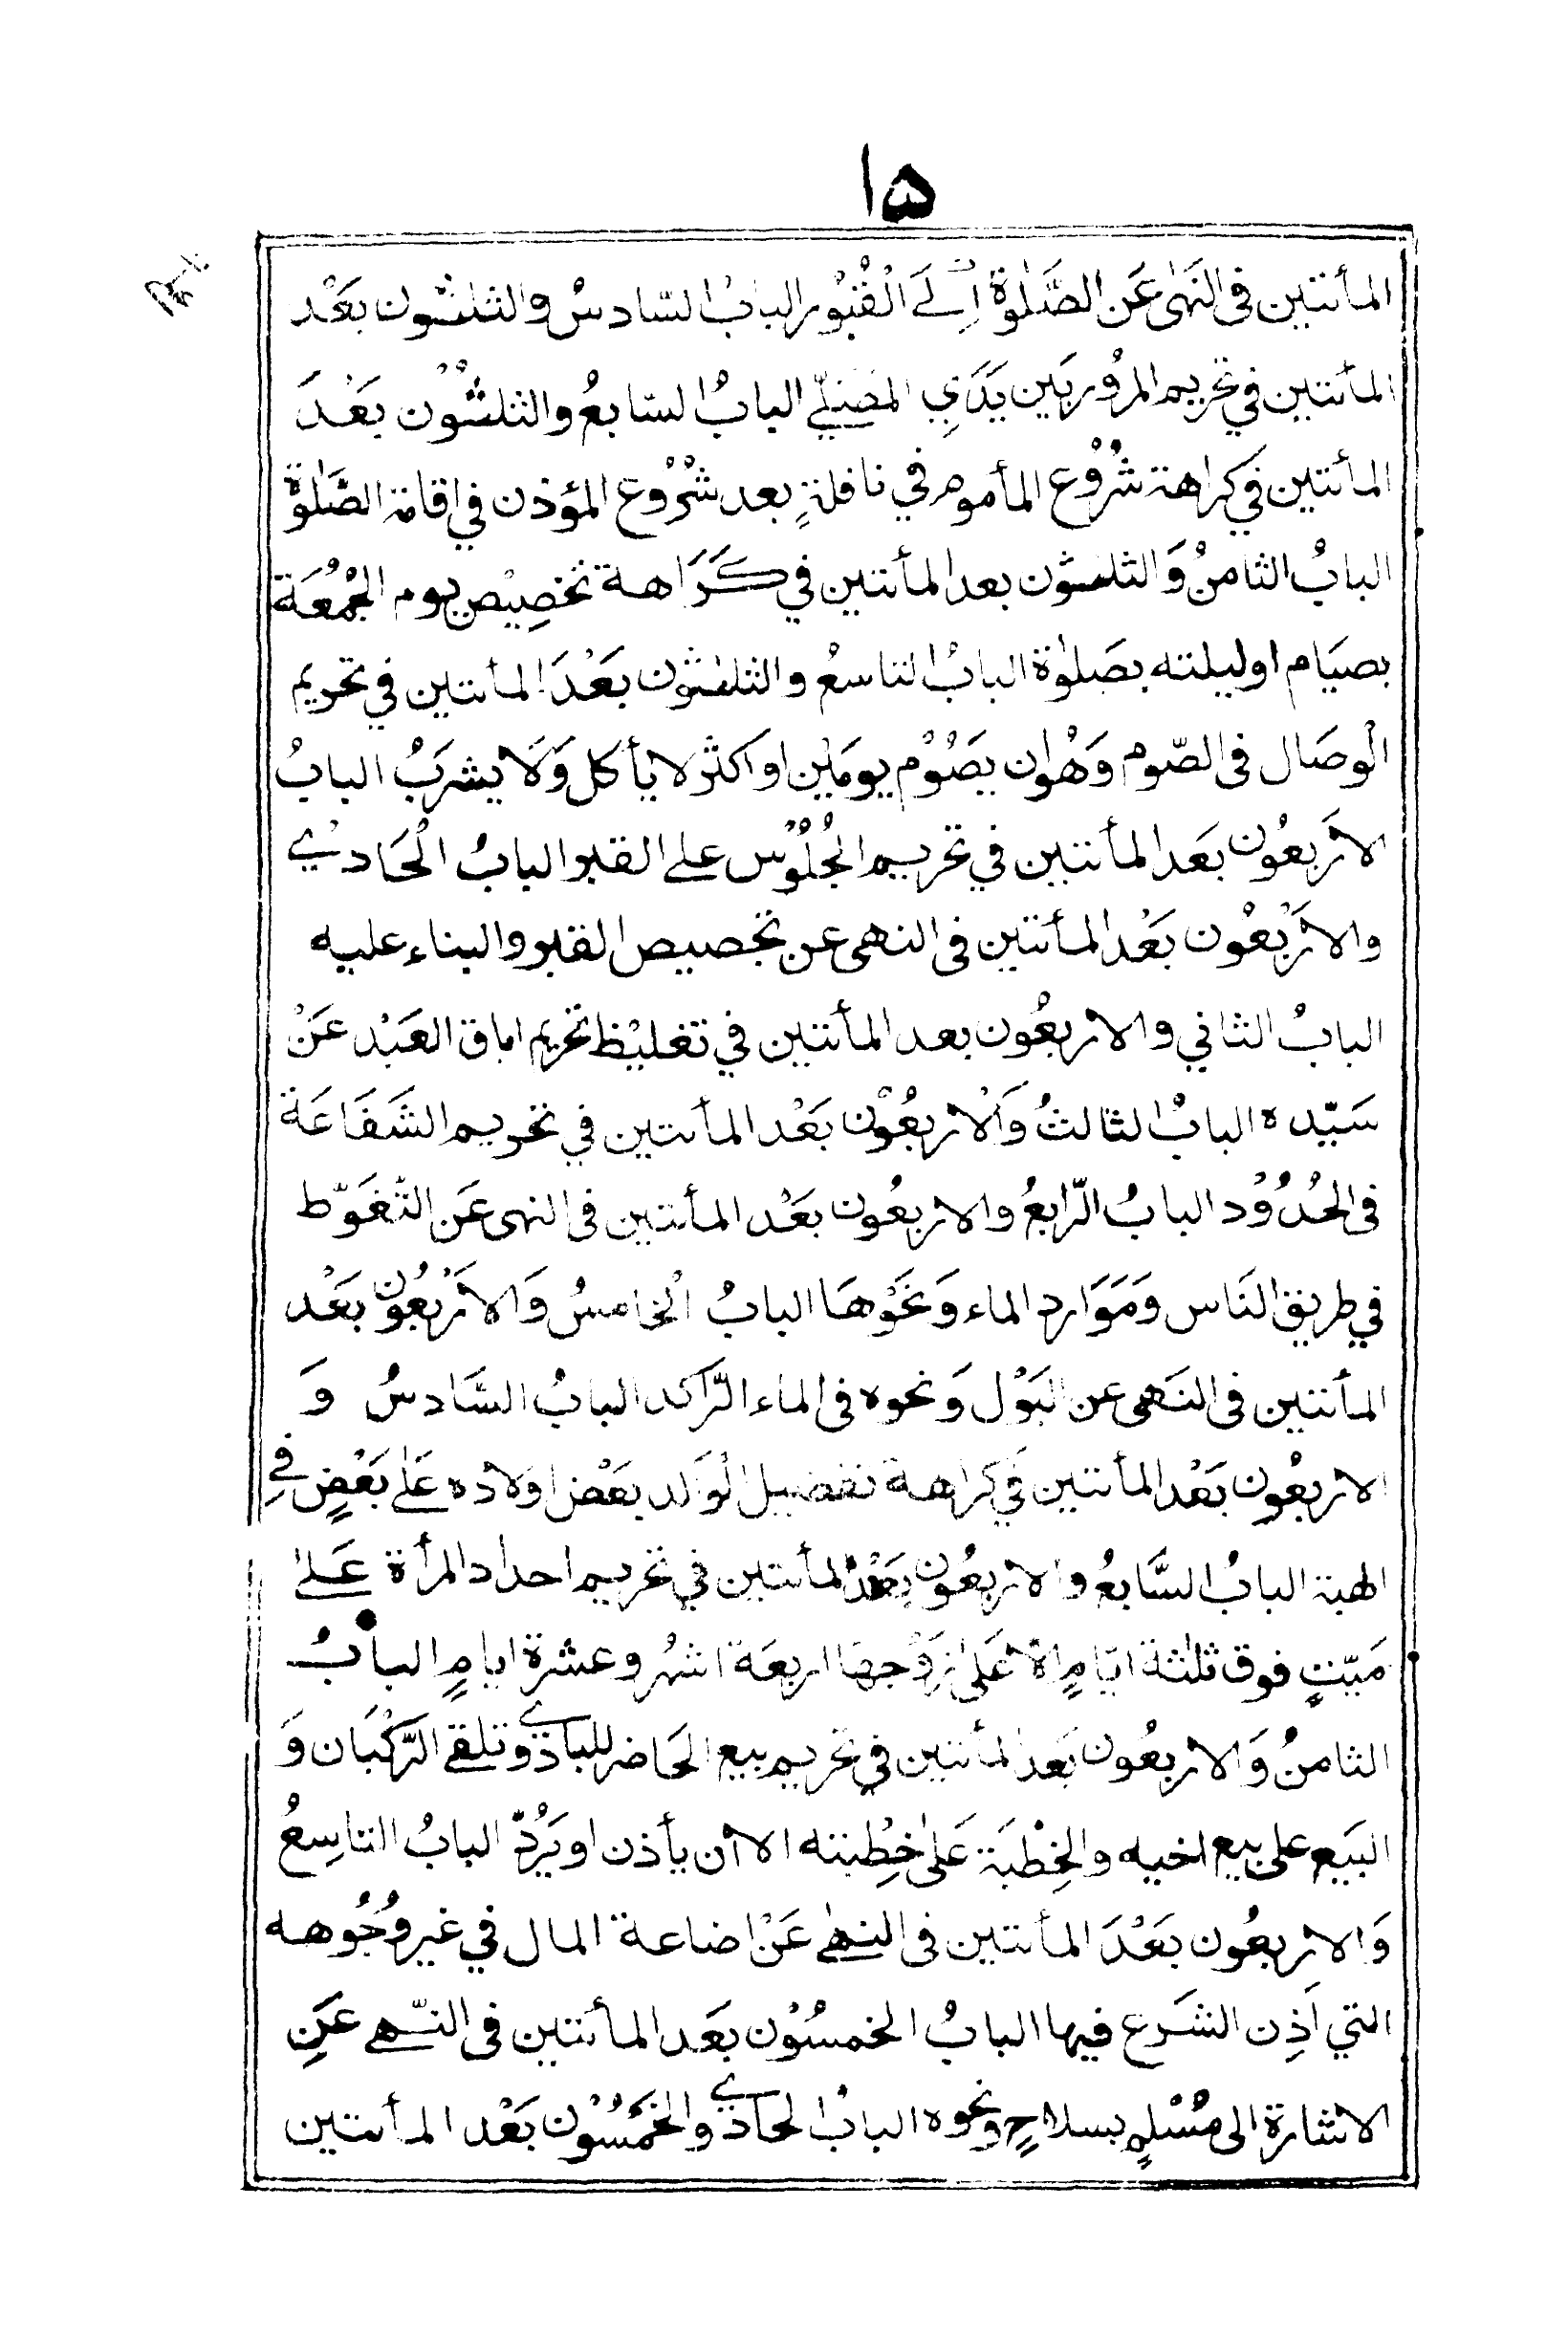 ١٥
المأتتين فى النَهٰى عَن الصَّلٰوة اِلَے الْقُبُوْر البابُ السّادسُ والثلٰثون بَعْد
المأتتين في تحريم المرُوْر بَين يَدَيِ المصَلّے البابُ السّابعُ والثلٰثُوْن بَعْدَ
المأتتين في كراهة شُرُوْع المأموم في نافلةٍ بعد شُرُوْع المؤذن في اقامة الصَّلٰوة
البابُ الثامنُ وَالثلٰثون بعد المأتتين في كَرَاهة تخصِيْص يوم الجُمْعَة
بصيَام او ليلته بصَلٰوة البابُ التاسعُ والثلٰثون بَعْدَ المأتتين في تحريم
الْوصَال فى الصّوم وَهُوان يصُوْم يومَين او اكثر لا يأكل وَلَا يشربَ البابُ
الاربعُون بَعَد المأتتين في تحريم الجُلُوْس على القبر البابُ الْحَادِيْ
والاَرْبعُوْن بَعْد المأتتين فى النهى عن تجصيص القبر والبناء عليه
البابُ الثاني والاربعُون بعد المأتتين في تغليْظ تحريم اباق العَبْد عَنْ
سَيّده البابُ الثالثُ وَالْاربعُوْن بَعْد المأتتين في تحريم الشَفَاعَة
فى الحُدُوْد البابُ الرّابعُ والاربعُون بَعْد المأتتين فى النهى عَن التّغَوّط
في طريق النَاس وَمَوَارد الماء وَنَحْوْهَا البابُ الْخامسُ وَالاَرْبعُوْن بَعْد
المأتتين فى النَهى عن البَوْل وَنحوه فى الماء الرّاكد البابُ السَّادسُ وَ
الاربعُون بَعْد المأتتين في كراهة تفضيل الْوَالد بعَضْ اوْلاده عَلٰے بَعْضٍ فِے
الهبة البابُ السَّابعُ والاربعُون بَعْدَ المأتتين في تحريم احداد المرأة عَلےٰ
مَيّتٍ فوق ثلٰثة ايّامٍ الّا عَلٰى زَوْجهَا اربعَة اشهُر وعشرة ايامٍ البابُ
الثامنُ وَالاربعُون بَعد المأتتين في تحريم بيع الحَاضر للبادي وتلقے الرّكْبَان وَ
البَيع على بيع اخيه والخِطْبَة عَلٰى خِطْبته الا ان يأذن او يَرُدّ البابُ التاسِعُ
وَالاربعُون بَعْدَ المأتتين فى النهٰے عَنْ اضاعة المال في غير وُجُوهه
التي اَذِن الشَرع فيها البابُ الخمسُوْن بَعَد المأتتين فى النّهے عَنِ
الاشارة الى مُسْلمٍ بسلاحٍ ونحوه البابُ الحادي والخَمْسُوْن بَعْد المأتتين